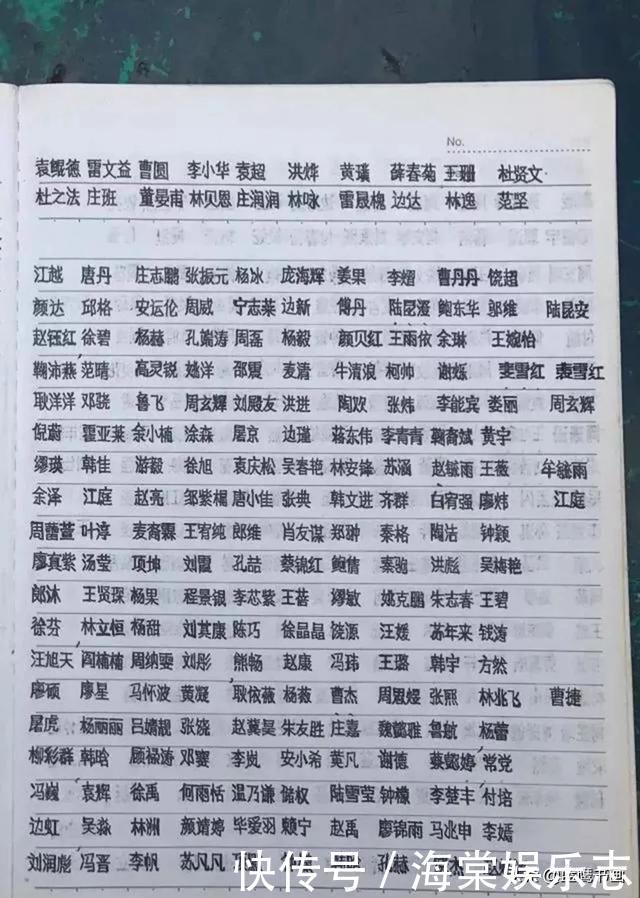 No.
袁鲲德 雷文益 曹圆 李小华 袁超 洪烨 黄瑱 薛春菊 王珊 杜贤文
杜之法 庄班 董晏甫 林贝恩 庄润润 林咏 雷晟槐 边达 林逸 范坚
江越 唐丹 庄志鹏 张振元 杨冰 庞海辉 姜果 李熠 曹丹丹 饶超
颜达 邱格 安运伦 周威 宁志莱 边新 傅丹 陆昆漫 鲍东华 邬维 陆昆安
赵钰红 徐碧 杨赫 孔端涛 周磊 杨毅 颜贝红 王雨依 余琳 王婉怡
鞠沛燕 范晴 高灵锐 姚洋 邵震 麦清 牛清浪 柯帅 谢烁 裴雪红 袁雪红
耿洋洋 邓骁 鲁飞 周玄辉 刘殿友 洪进 陶双 张炜 李能宾 娄丽 周玄辉
倪蔚 霍亚莱 余小楠 涂森 屠京 边瑾 蒋东伟 李青青 鞠育斌 黄宇
缪瑛 韩佳 游毅 徐旭 袁庆松 吴春艳 林安锋 苏涵 赵毓雨 王薇 牟毓雨
金泽 江庭 赵亮 邹紫榴 唐小佳 张典 韩文进 齐群 白宥强 廖炜 江庭
周蕾萱 叶淳 麦裔霖 王宥纯 郎维 肖友谋 郑翀 秦格 陶洁 钟颖
廖真紫 汤莹 项坤 刘霞 孔喆 蔡锦红 鲍倩 秦驰 洪彪 吴梅艳
郎沐 王贤琛 杨果 程景银 李芯紫 王葚 缪敏 姚克鹏 朱志春 王碧
徐芬 林立恒 杨甜 刘其康 陈巧 徐晶晶 饶源 汪媛 苏年来 钱涛
汪旭天 阎楠楠 周纳雯 刘彤 熊畅 赵康 冯玮 王璐 韩宇 方然
廖硕 廖星 马怀波 黄凝 耿依薇 杨薇 曹杰 周思煜 张熙 林兆飞 曹捷
屠虎 杨丽丽 吕嫱靓 张饶 赵冀昊 朱友胜 庄嘉 魏懿雅 鲁航 杨蕾
柳彩群 韩晗 顾禄涛 邓窦 李岚 安小希 黄凡 谢德 蔡懿婷 常党
冯巍 袁辉 徐禹 何雨恬 温乃谦 储权 陆雪莹 钟檬 李楚丰 付培
边虹 吴淼 林洲 颜婧婷 毕爱羽 赖宁 赵禹 廖锦雨 马兆申 李嫣
刘润彪 冯晋 李帆 苏凡凡
快传号/海棠娱乐志